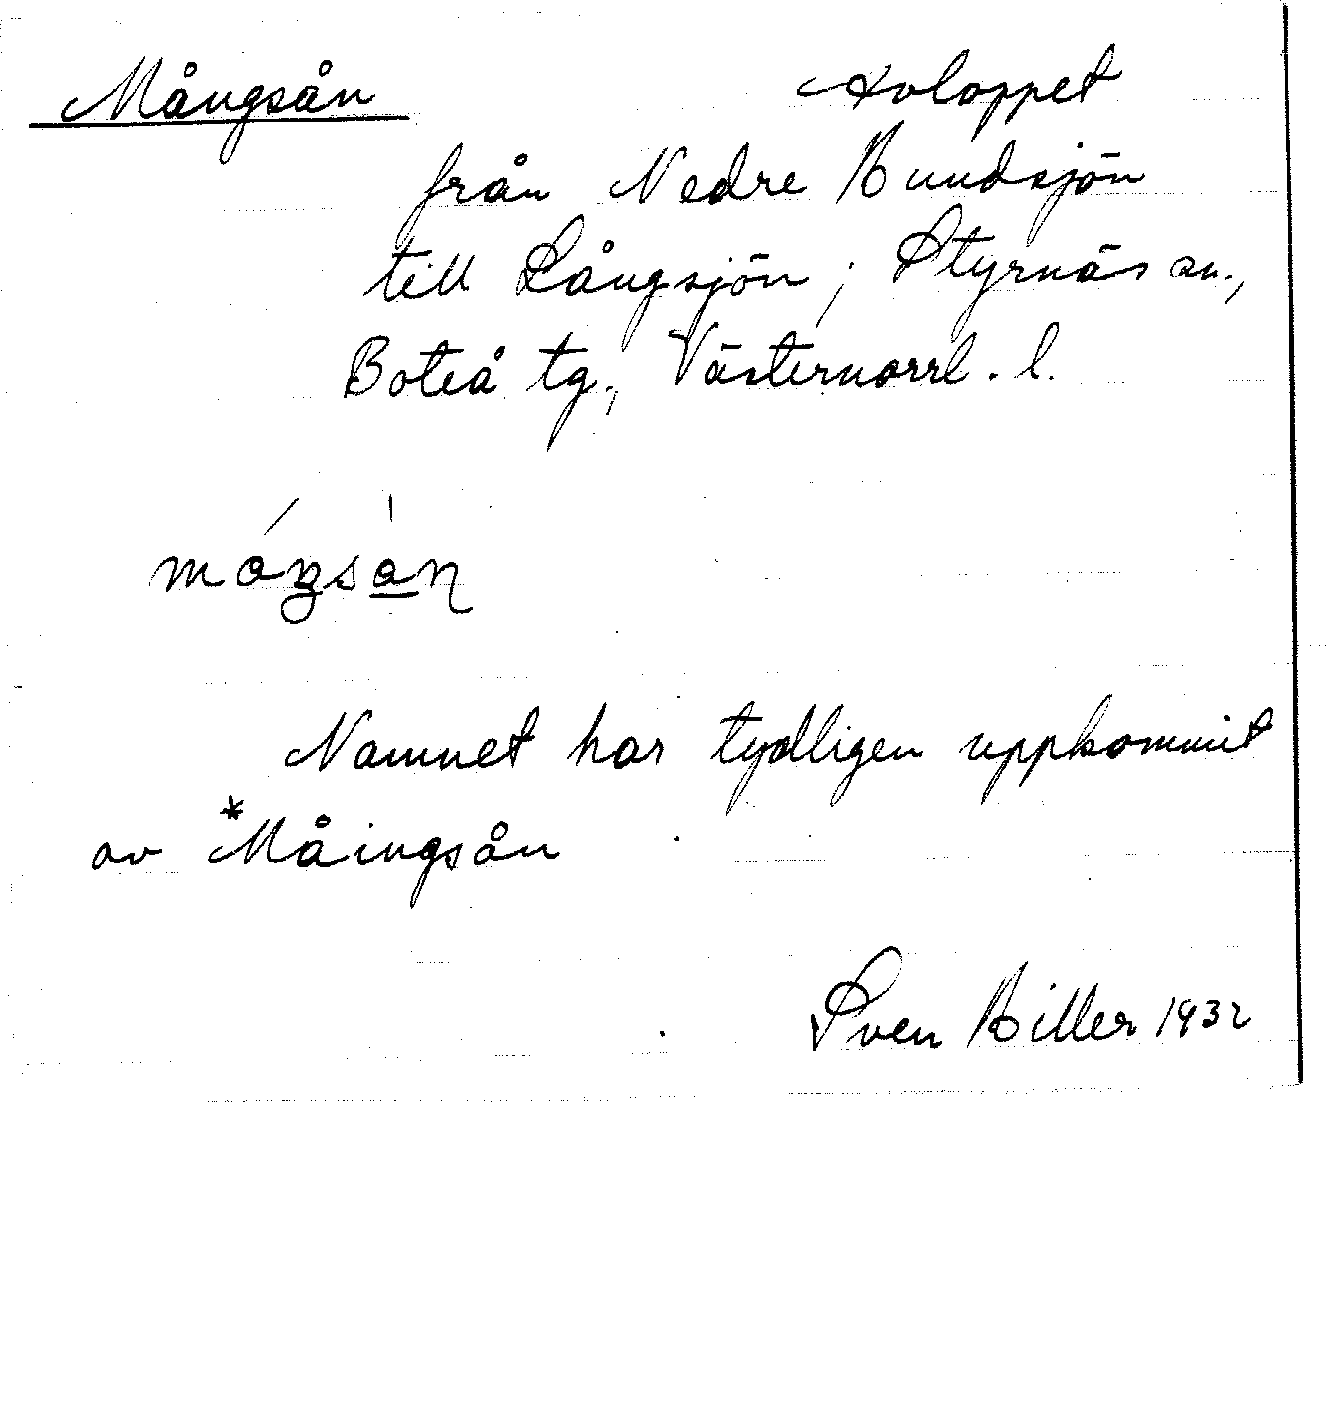 Mångsån Avloppet
från Nedre Bundsjön
till Långsjön, Styrnäs sn.,
Boteå tg., Västernorrl. l.
móŋsòn
Namnet har tydligen uppkommit
av *Måingsån
Sven Biller 1932